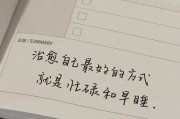 总结 / SUMMARY
治愈自己最好的方式
就是忙碌和早睡.